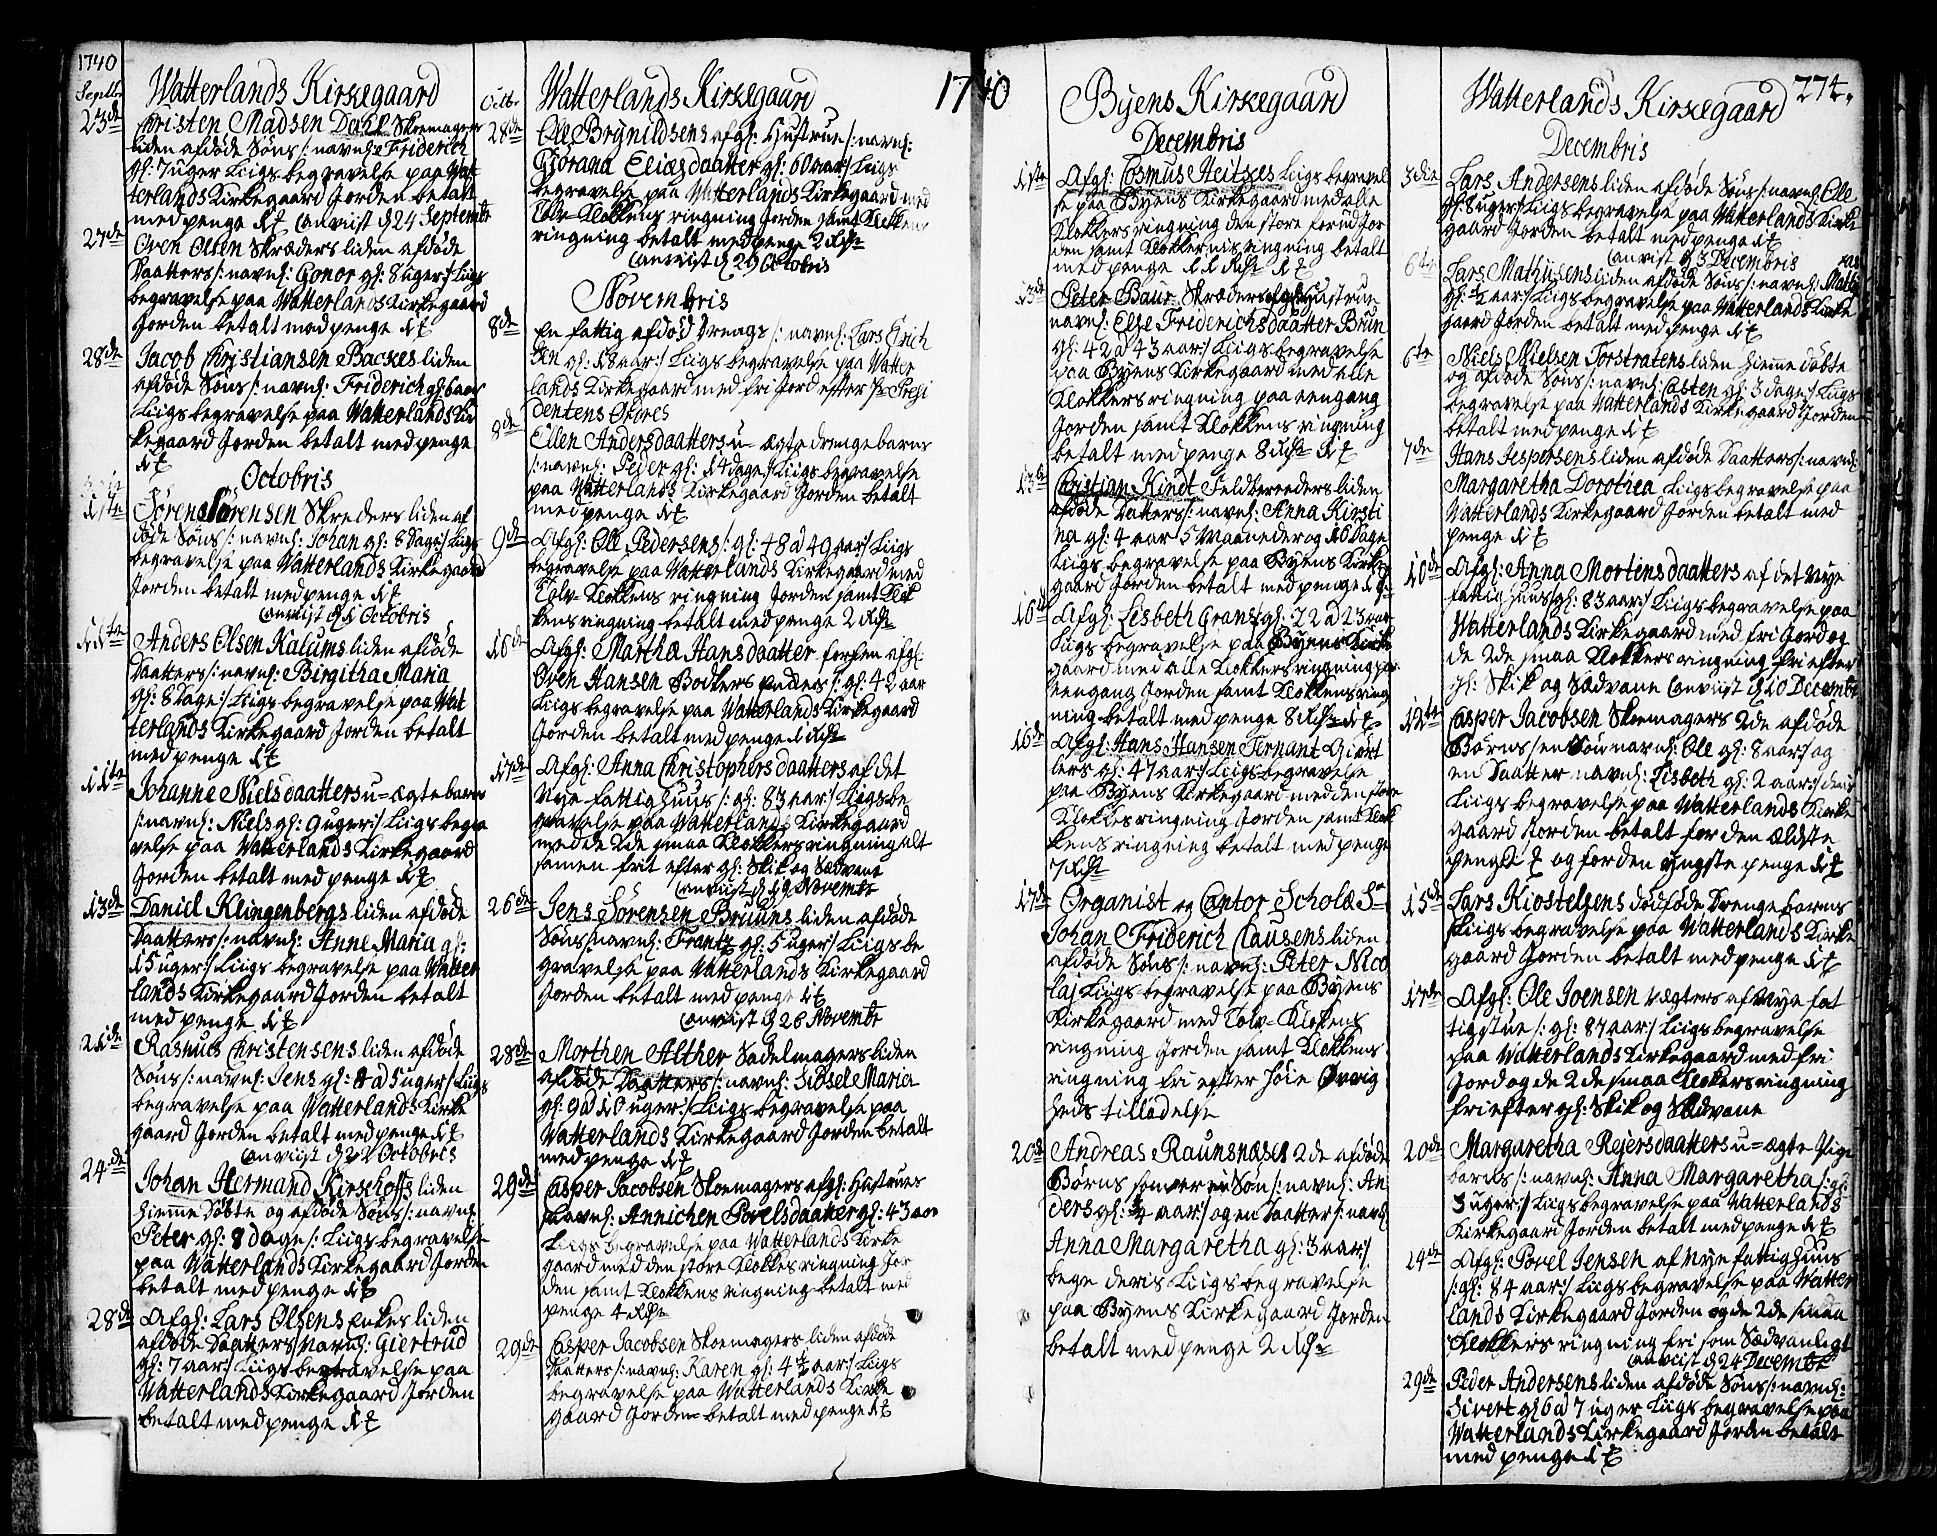 1740
Septbr
Watterlands Kirkegaard
23de
Christen Madsen Dahl Skoemagers
liden afdøde Søns /: navnl: Friderich
gl: 7 uger Liigs begravelse paa Wat-
terlands Kirkegaard Jorden betalt
med penge anviist d 24 Septembr
27de
Oven Olsen Skræders liden afdøde
Daatters /: navnl: Gonor gl: 8 uger :/ Liigs
begravelse paa Watterlands Kirkegaard
Jorden betalt med penge
28de
Jacob Christiansen Backes liden
afdøde Søns /: navnl: Friderich gl: 6 aar
Liigs begravelse paa Watterlands Kir
kegaard Jorden betalt med penge
Octobris
Sørens Sørensen Skreders liden af
døde Søns /: navnl: Johan gl: 8 dage :/ Liigs
begravelse paa Watterlands Kirkegaard
Jorden betalt med penge
anviist Octobris
11te
Anders Olsen Kalums liden afdøde
Daatters /: navnl: Birgitha Maria
gl: 8 dage :/ Liigs begravelse paa Wat
terlands Kirkegaard Jorden betalt
med penge
11te
Johanne Nielsdaatters u=ægte barns
/: navnl: Niels gl: 9 uger :/ Liigs begra
velse paa Watterlands Kirkegaard
Jorden betalt med penge
13de
Daniel Klingenbergs liden afdøde
Daatters /: navnl: Anne Maria gl:
15 uger :/ Liigs begravelse paa Watter
lands Kirkegaard Jorden betalt
med penge
21de
Rasmus Christensens liden afdøde
Søns /: navnl: Jens gl: a 5 uger :/ Liigs
begravelse paa Watterlands Kirke
gaard Jorden betalt med penge
anviist d 22 Octobris
24de
Johan Hermand Kirshoffs liden
hiemme døbte og afdøde Søns /: navnl:
Peter gl: 8 dage /: Liigs begravelse
paa Watterlands Kirkegaard Jorden
betalt med penge
28de
Afgl: Lars Olsens Enkes liden
afdøde Daatters navnl: Giertrud
gl: 7 aar :/ Liigs begravelse paa
Watterlands Kirkegaard Jorden
betalt med penge
Octbr
Watterlands Kirkegaard
28de
Ole Brynildsens afgl: Hustrue /: navnl:
Giorana Eliæsdaatter gl: 60 aar :/ Liigs
begravelse paa Watterlands Kirkegaard med
Tolv-Klokkens ringning Jorden samt Klokkens
ringning betalt med penge 2
anviist d 29 Octobris
Novembris
8de
En fattig afdød Drengs /: navnl: Lars Erich
sen gl: 18 aar :/ Liigs begravelse paa Watter
lands Kirkegaard med fri Jord efter Hr Presi
dentens Ordres
8de
Ellen Andersdaatters u=ægte drengebarns
/: navnl: Peder gl: 14 dage :/ Liigs begravelse
paa Watterlands Kirkegaard Jorden betalt
med penge
9de
Afgl: Ole Pedersens /: gl: 48 a 49 aar :/ Liigs
begravelse paa Watterlands Kirkegaard med
Tolv-Klokkens ringning Jorden samt Klok
kens ringning betalt med penge 2
16de
Afgl: Martha Hansdaatter forhen afgl:
Oven Hansen Bødkers /: gl: 42 aar
Liigs begravelse paa Watterlands Kirkegaard
Jorden betalt med penge
17de
Afgl: Anna Christophersdaatters af det
Nye fattighuus /: gl: 83 aar :/ Liigs be
gravelse paa Watterlands Kirkegaard
med de 2de smaa Klokkers ringning alt
samen frit efter gl: Skik og Sædvane
anviist d 19 Novembr
26de
Jens Sørensen Bruuns liden afdøde
Søns /: navnl: Frantz gl: 5 uger :/ Liigs be
gravelse paa Watterlands Kirkegaard
Jorden betalt med penge
anviist d 26 Novembr
28de
Morthen Alther Sadelmagers liden
afdøde Daatters /: navnl: Sidsel Maria
gl: 9 a 10 uger :/ Liigs begravelse paa
Watterlands Kirkegaard Jorden betalt
med penge
29de
Casper Jacobsen Skoemagers afgl: Hustrues
/: navnl: Annichen Povelsdaatter gl: 43 aar
Liigs begravelse paa Watterlands Kirke
gaard med den store Klokkes ringning Jor
den samt Klokkens ringning betalt med
penge 4
29de
Casper Jacobsen Skoemagers liden afdøde
Daatters /: navnl: Karen gl: 4 1/2 aar :/ Liigs
begravelse paa Watterlands Kirke
gaard Jorden betalt med penge
1740
Byens Kirkegaard
Decembris
Afgl: Cosmus Heitkes Liigs begravel
se paa Byens Kirkegaard med alle
Klokkers ringning den store forud Jor
den samt Klokkernis ringning betalt
med penge
13de
Peter Baur Skræders afgl: Hustrue
navnl: Else Friderichsdaatter Brun
gl: 42 a 43 aar :/ Liigs begravelse
paa Byens Kirkegaard med alle
Klokkers ringning paa eengang
Jorden samt Klokkens ringning
betalt med penge 8
13de
Christian Kindt Feldbereeders liden
afdøde Datters /: navnl: Anna Kirsti
na gl: 4 aar 5 Maaneder og 16 Dage
Liigs begravelse paa Byens Kirke
gaard Jorden betalt med penge
16de
Afgl: Lisbeth gl: 22 a 23 aar
Liigs begravelse paa Byens Kirke
gaard med alle Klokkers ringning paa
eengang Jorden samt Klokkens ring
ning betalt med penge 8
16de
Afgl: Hans Hansen Ternant Giørt
lers gl: 47 aar :/ Liigs begravelse
paa Byens Kirkegaard med den store
Klokkes ringning Jorden samt Klok
kens ringning betalt med penge
7
17de
Organist og Cantor Scholæ Sr
Johan Friderich Clausens liden
afdøde Søns /: navnl: Peter Nico
laj Liigs begravelse paa Byens
Kirkegaard med Tolv-Klokkens
ringning Jorden samt Klokkens
ringning fri efter høie Øvrig
heds tilladelse
20de
Andreas Raunsnæses 2de afdøde
Børns som var en Søn /: navnl: An
ders gl: 3/4 aar :/ og en Daatter /: navnl:
Anna Margaretha gl: 3 aar :/
bege deris Liigs begravelse
paa Byens Kirkegaard Jorden
betalt med penge 2
274.
Watterlands Kirkegaard
Decembris
3die
Lars Andersens liden afdøde Søns /: navnl: Ole
gl: 8 uger :/ Liigs begravelse paa Watterlands Kirke
gaard Jorden betalt med penge
anvist d 3 Decembris
6te
Lars Mathisens liden afdøde Søns /: navnl:
gl: 1/2 aar :/ Liigs begravelse paa Watterlands Kirke
gaard Jorden betalt med penge
6te
Niels Nielsen Torstratens liden hiemme døbte
og afdøde Søns /: navnl: Casten gl: 3 dage :/ Liigs
begravelse paa Watterlands Kirkegaard Jorden
betalt med penge
7de
Hans Jespersens liden afdøde Daatters /: navnl:
Margaretha Dorothea Liigs begravelse paa
Watterlands Kirkegaard Jorden betalt med
penge
10de
Afgl: Anna Mortensdaatters af det Nye
fattig huus /: gl: 83 aar :/ Liigs begravelse paa
Watterlands Kirkegaard med fri Jord og
de 2de smaa Klokkers ringning fri efter
gl: Skik og Sædvane anviist d 10 Decembr
12te
Casper Jacobsen Skoemagers 2de afdøde
Børns /: en Søn navnl: Ole gl: 8 aar :/ og
en Daatter navnl: Lisbeth gl: 2 aar :/ deris
Liigs begravelse paa Watterlands Kirke
gaard Jorden betalt for den ældste
penge og for den yngste penge
15de
Lars Kiostelsens dødføde Drenge barns
Liigs begravelse paa Watterlands Kirke
gaard Jorden betalt med penge
17de
Afgl: Ole Joensen Vægters af Nye fat
tigstue /: gl: 87 aar :/ Liigs begravelse
paa Watterlands Kirkegaard med fri
Jord og de 2de smaa Klokkers ringning
fri efter gl: Skik og Sædvane
20de
Margaretha Rejersdaatters u=ægte Pige
barns /: navnl: Anna Margaretha /: gl:
3 uger :/ Liigs begravelse paa Watterlands
Kirkegaard Jorden betalt med penge
24de
Afgl: Povel Jensen af Nye fattighuus
/: gl: 84 aar :/ Liigs begravelse paa Watter
lands Kirkegaard Jorden og de 2de smaa
Klokkers ringning fri som Sædvanligt
anviist d 24 Decembr
29de
Peder Andersens liden afdøde Søns /: navnl:
Sivert gl: 6 a 7 uger Liigs begravelse paa
Watterlands Kirkegaard Jorden betalt
med penge